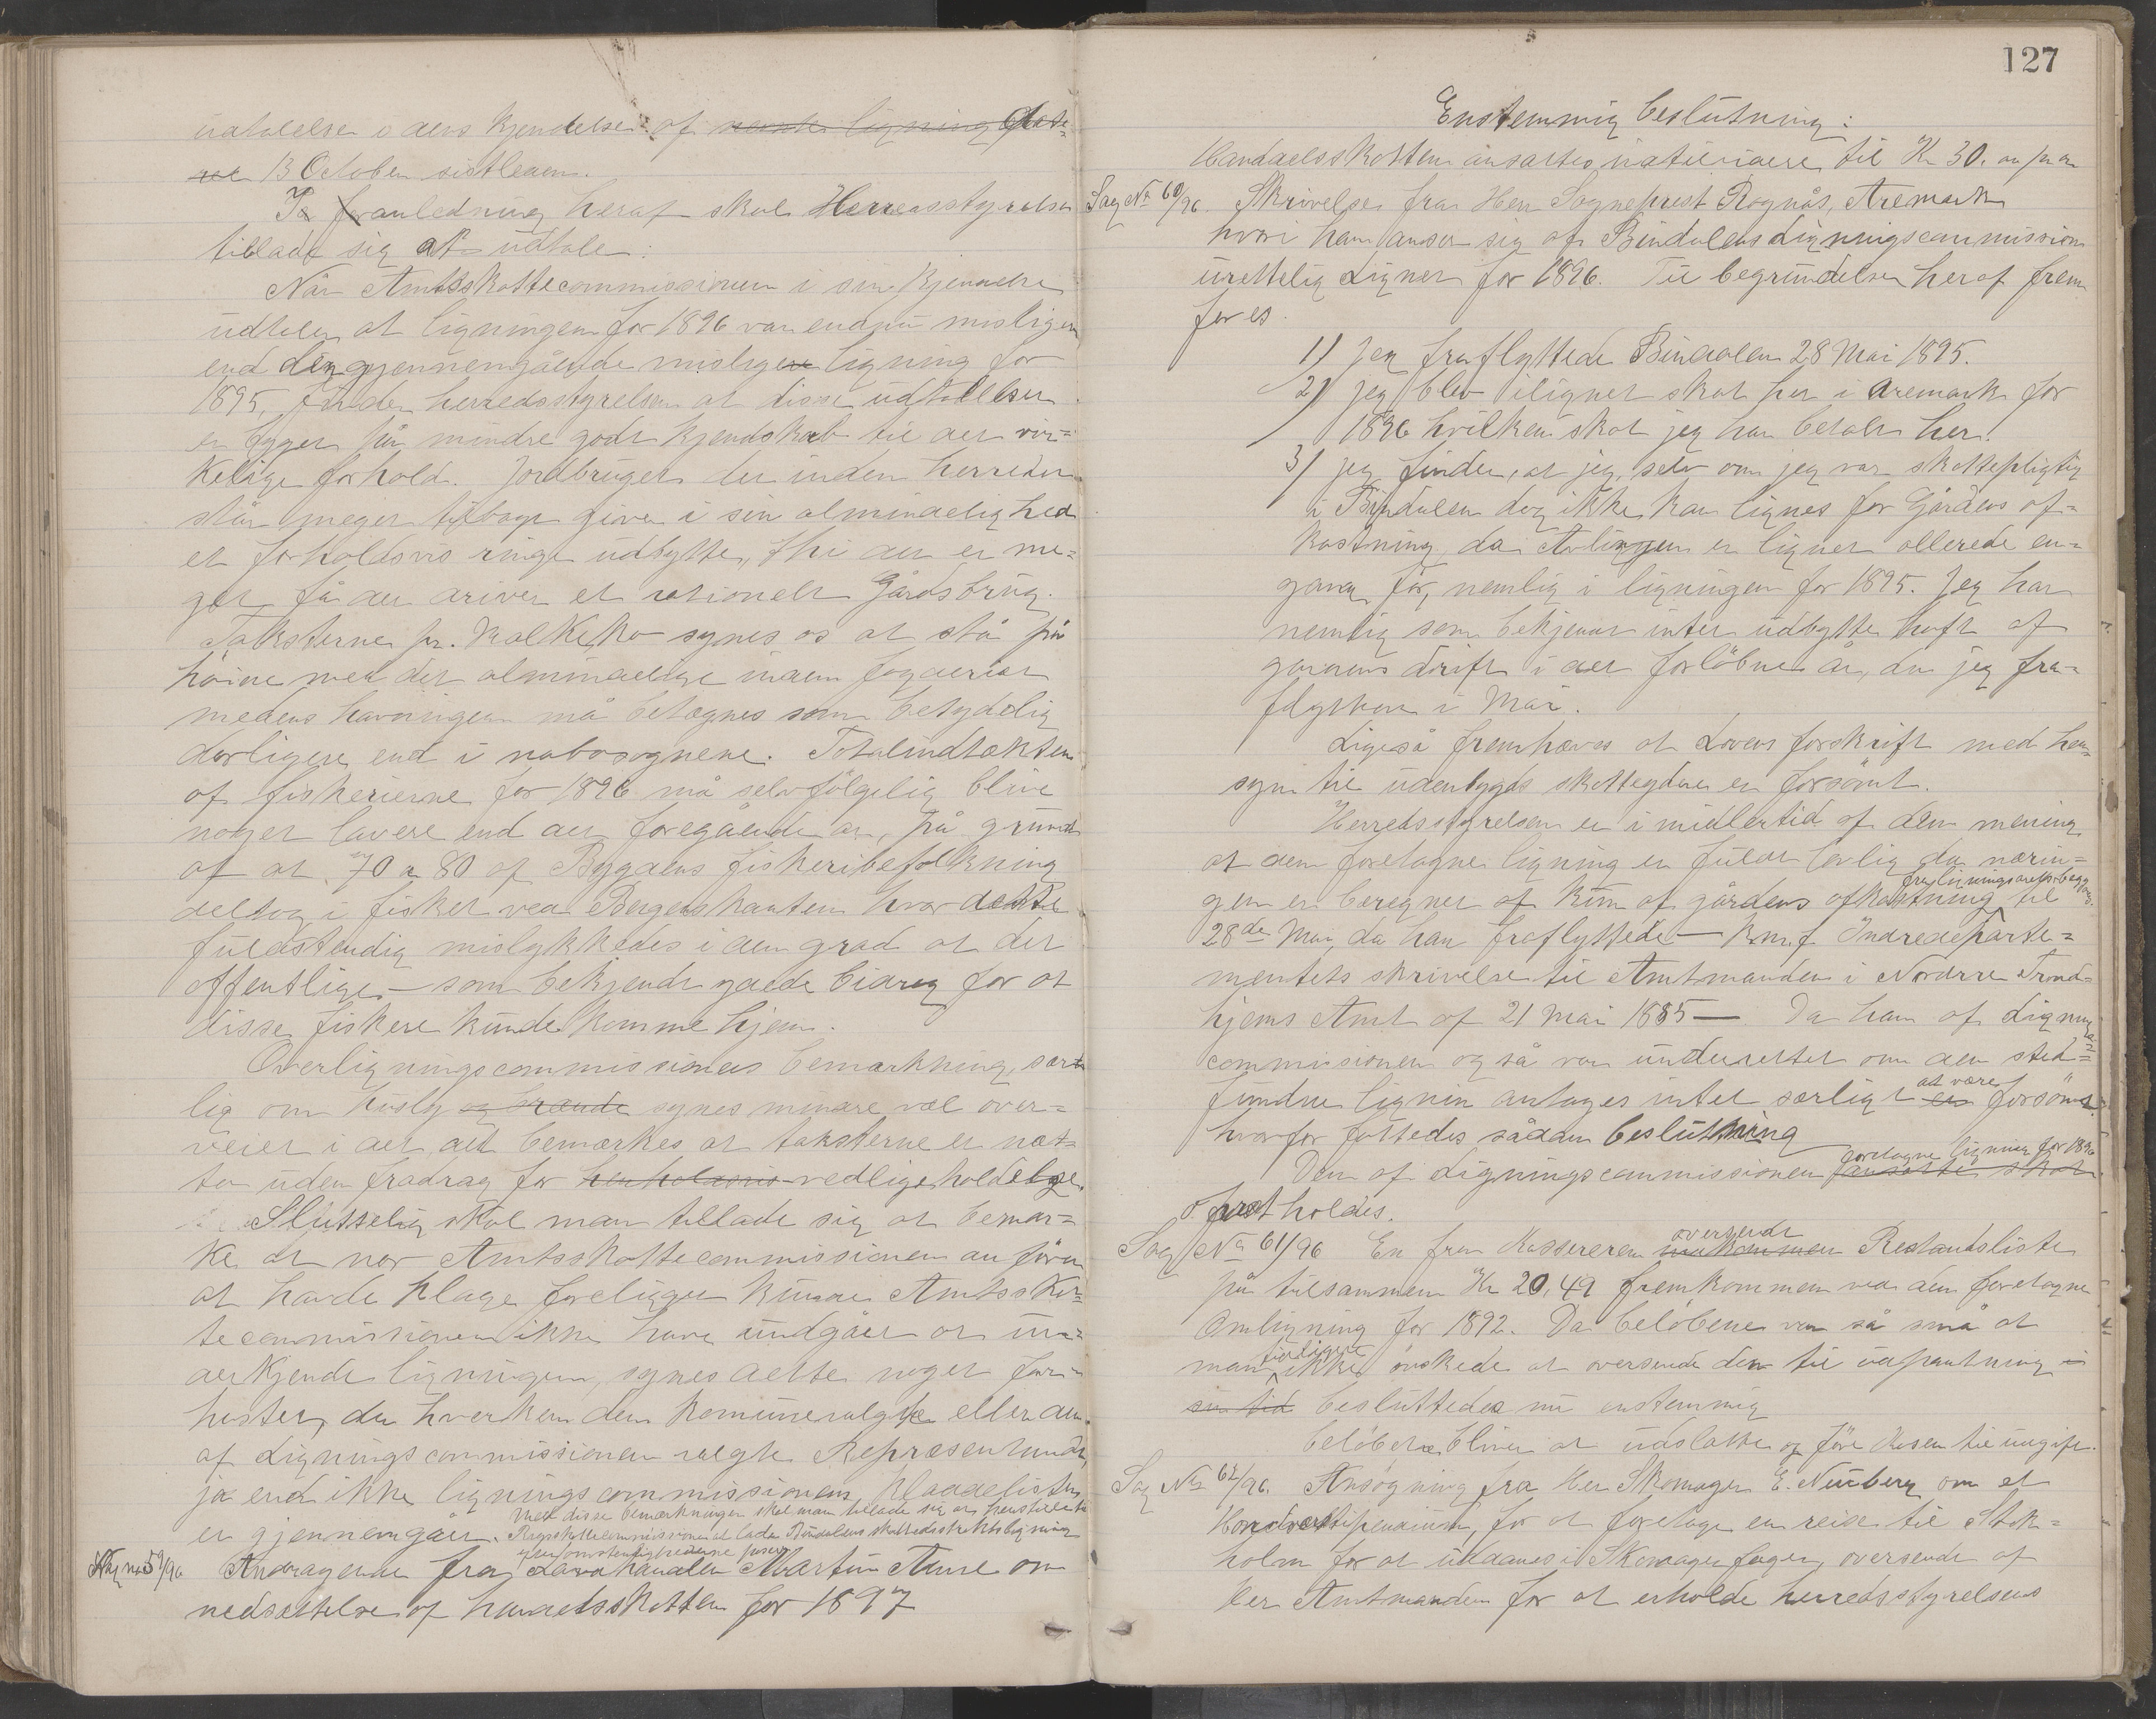 udtalelse i dens kjendelse af næste ligning date-
ret 13 October sistleden.
I foranledning heraf skal Herredsstyrelsen
tillade sig at udtale:
Når Amtsskattecommissionen i sin kjendelse
udtaler at ligningen for 1896 var endnu misligere
end den gjennemgående misligere ligning for
1895, finder herredsstyrelsen at disse udtalelser
er bygget på mindre godt kjendskab til det vir-
kelige forhold. Jordbruget der inden herredet
står meget tilbage giver i sin almindelighed
et forholdsvis ringe udbytte, thi det er me-
get få der driver et rationelt Gårdsbrug.
Taksterne pr. Malkeko synes os at stå på
höine med det almindelige inden fogderiet
medens havningen må betegnes som betydelig
dårligere end i nabosognene. Totalindtækten
af fiskerierne for 1896 må selvfölgelig blive
noget lavere end det foregående år, på grund
af at 70 a 80 af Bygdens fiskeribefolkning
deltog i fisket ved Bergenskanten hvor dette
fuldstendig mislykkedes i den grad at det
offentlige – som bekjendt gjorde bidrag for at
disse fiskere kunde komme hjem.
Overligningscommissionens bemærkning, sær-
lig om husly og brænde synes mindre vel over-
veiet i det, det bemærkes at taksterne er nat-
to uden fradrag for henholdsvis vedligeholdelse.
Slutselig skal man tillade sig at bemær-
ke at nor Amtsskattecommissionen anförer
at havde klage foreligget kunde Amtsskat-
tecommissionen ikke have undgået at un-
derkjende ligningen, synes dette noget for-
hastet, da hverken den komunevalgte eller den
af Ligningscommissionen valgte Representant,
ja end ikke ligningscommissionens klagelister
er gjennemgået. Med disse bemærkninger skal man tillade sig at henstille til
Rigsskattecommissionen at lade Bindalens skattedistrikts ligning
for omstendighederne passere
Sag No 59/96 Andragende fra Martin Aune om
nedsættelse af handelsskatten for 1897
127
Enstemmig beslutning:
Handelsskatten ansættes uatterligere til Kr 30. an pr an
Sag No 60/96. Skrivelse fra Herr Sogneprest Rognås, Aremark
hvori han anser sig af Bindalens Ligningscommission
urettelig Lignet for 1896. Til begrundelse heraf frem
föres.
1) Jeg fraflyttede Bindalen 28 Mai 1895.
2) jeg blev ilignet skat her i Aremark for
1896 hvilken skat jeg har betalt her.
3) jeg finder, at jeg, selv om jeg var skattepligtig
i Bindalen dog ikke kan lignes for Gårdens af-
kastning, da Avlingen er lignet allerede en-
gang för, nemlig i ligningen for 1895. Jeg har
nemlig som bekjendt intet udbytte havt af
gårdens drift i det forlöbne år, da jeg fra-
flyttede i Mai.
Ligeså fremhæves at Lovens forskrift med hen-
syn til udenbygds skatteydere er forsömt.
Herredsstyrelsen er i midlertid af den mening
at den foretagne ligning er fuldt lovlig da nærin-
gen er beregnet af kun af gårdens afkastning fra ligningsårets begyn. til
28de Mai, da han fraflyttede – Kmf. Indredeparte-
mentets skrivelse til Amtmanden i Nordre Trond-
hjems Amt af 21 Mai 1885 – Da han af Lignings
commissionen også var underrettet om den sted-
fundne lignin antages intet særligt er at være forsömt
hvorfor fattedes sådan beslutning
Den af Ligningscommissionen ansatte skat foretagne ligning for 1896
opretholdes.
Sag No 61/96 En fra Kassereren oversendt Restanceliste
på tilsammen Kr 20,49 fremkommen ved den foretagne
Omligning for 1892. Da belöbene var så små at
man tidligere ikke önskede at oversende den til udpantning i
sin tid besluttedes nu enstemmig
belöbene bliver at udslette og före Kasen til udgift.
Sag No 62/96. Ansögning fra Herr Skomager E. Nürberg om et
Håndverkstipendium, for at foretage en reise til Stok-
holm for at uddannes i Skomagerfaget, oversendt af
Herr Amtmanden for at erholde herredsstyrelsens